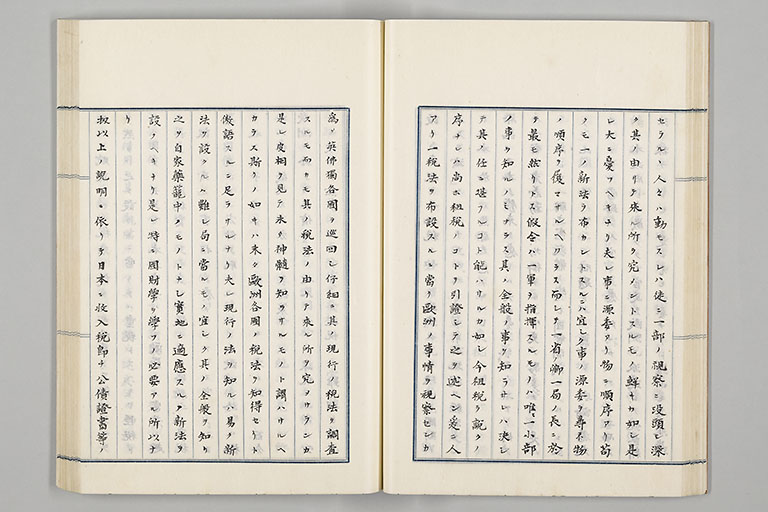 セラルヽ人々ハ動モスレハ徒ニ一部ノ視察ニ没頭シ深
ク其ノ由リテ来ル所ヲ究ノントスルモノ鮮キカ如シ是
レ大ニ憂フヘキナリ夫レ事ニ源委アリ物ニ順序アリ苟
クモ一ノ新法ヲ布カントスルニハ宜シク事ノ源委ヲ尋ネ物
ノ順序ヲ履マサルヘカラス而シテ一省ノ卿一局ノ長ニ於
テ最モ然リトス假令ハ一軍ヲ指揮スルモノハ唯一小部
ノ事ヲ知ルノミナラス其ノ全般ノ事ヲ知ラサレハ決シ
テ其ノ任ニ堪フルコト能ハサルカ如シ今租税ヲ説クノ
序ナレハ尚ホ租税ノコトヲ引證シテ之ヲ述ヘン茲ニ人
アリ一税法ヲ布設スルニ當リ歐洲ノ事情ヲ視察センカ
為メ英佛獨各國ヲ巡回シ仔細ニ其ノ現行ノ税法ヲ調査
スルモ而カモ其ノ税法ノ由リテ来ル所ヲ究メサランカ
是レ皮相ヲ見テ未タ神髓ヲ知ラサルモノト謂ハサルヘ
カラス斯クノ如キハ未タ歐洲各國ノ税法ヲ知得セリト
做語スルニ足ラサルナリ夫レ現行ノ法ヲ知ルハ易ク新
法ヲ設クルハ難シ局ニ當ルモノ宜シク其ノ全般ヲ知リ
之ヲ自家藥籠中ノモノトナシ實地ニ適應スルノ新法ヲ
設クヘキナリ是レ時ニ國財學ヲ學フノ必要アル所以ナ
リ
扨以上説明ニ依リテ日本ニ收入税即チ公債證書等ノ